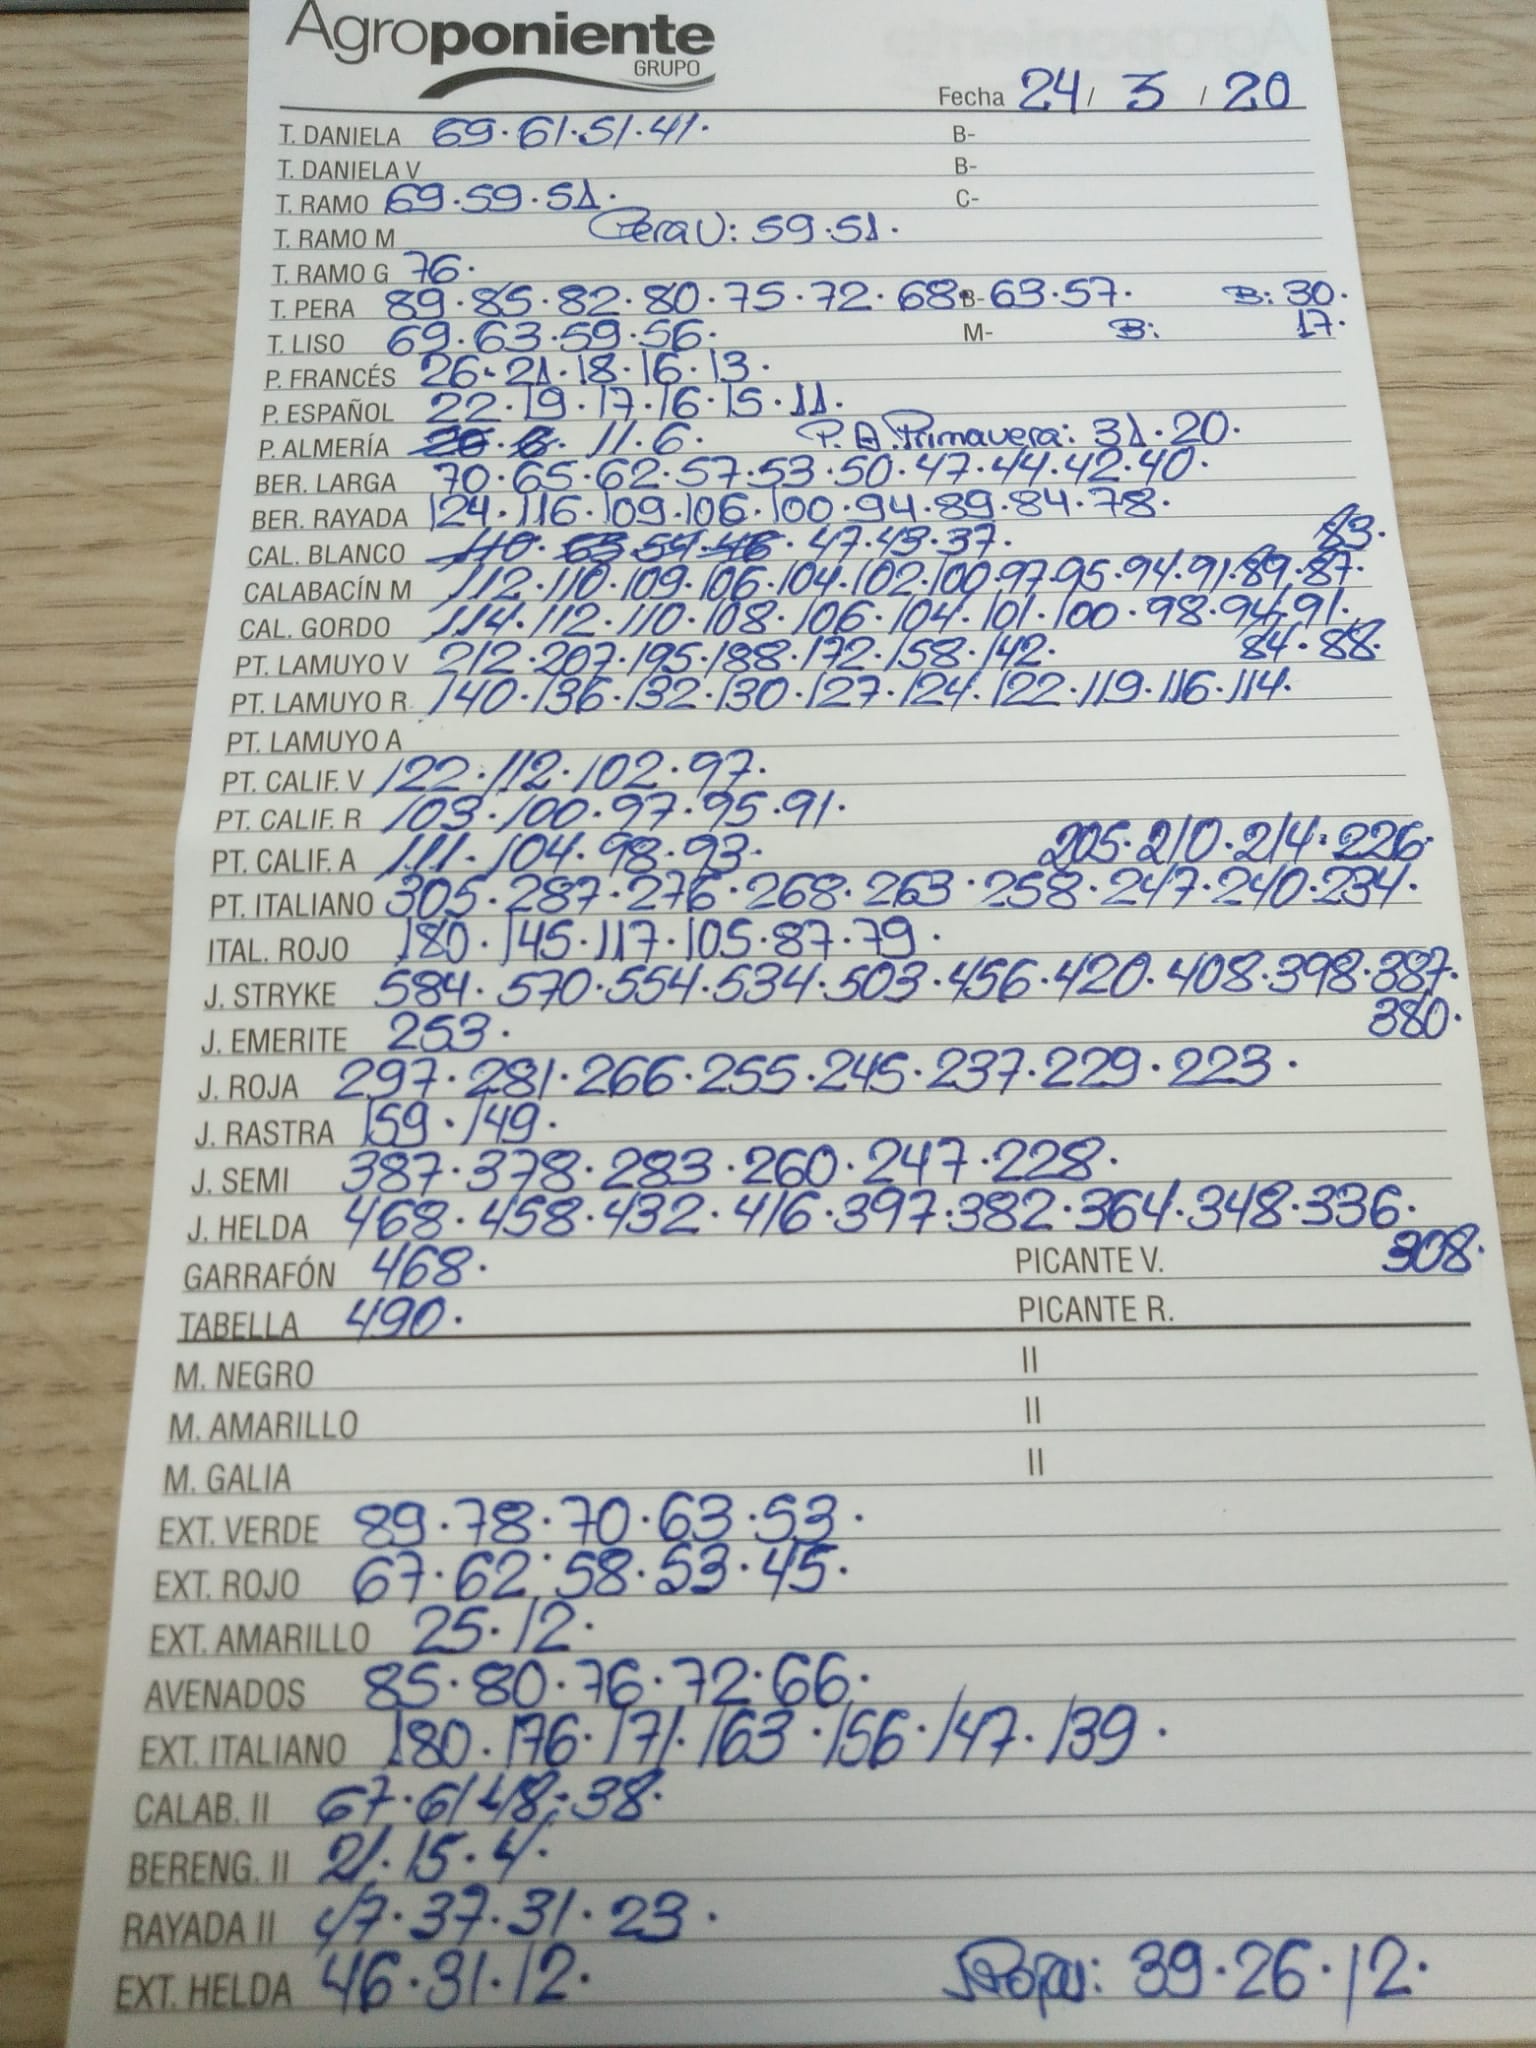 Agroponiente
GRUPO
Fecha 24 / 3 / 20
T. DANIELA 69·61·51·41· B-
T. DANIELA V B-
T. RAMO 69·59·51· C-
T. RAMO M Pera V: 59·51·
T. RAMO G 76·
T. PERA 89·85·82·80·75·72·68· B- 63·57· B: 30·
T. LISO 69·63·59·56· M- B: 17·
P. FRANCÉS 26·21·18·16·13·
P. ESPAÑOL 22·19·17·16·15·11·
P. ALMERÍA 11·6· P. A. Primavera: 31·20·
BER. LARGA 70·65·62·57·53·50·47·44·42·40·
BER. RAYADA 124·116·109·106·100·94·89·84·78·
CAL. BLANCO 47·43·37· 83·
CALABACÍN M 112·110·109·106·104·102·100·97·95·94·91·89·87·
CAL. GORDO 114·112·110·108·106·104·101·100·98·94·91·
PT. LAMUYO V 212·207·195·188·172·158·142· 84·88·
PT. LAMUYO R 140·136·132·130·127·124·122·119·116·114·
PT. LAMUYO A
PT. CALIF. V 122·112·102·97·
PT. CALIF. R 103·100·97·95·91·
PT. CALIF. A 111·104·98·93· 205·210·214·226·
PT. ITALIANO 305·287·276·268·263·258·247·240·234·
ITAL. ROJO 180·145·117·105·87·79·
J. STRYKE 584·570·554·534·503·456·420·408·398·387·
J. EMERITE 253· 380·
J. ROJA 297·281·266·255·245·237·229·223·
J. RASTRA 159·149·
J. SEMI 387·378·283·260·247·228·
J. HELDA 468·458·432·416·397·382·364·348·336·
GARRAFÓN 468· PICANTE V. 308·
TABELLA 490· PICANTE R.
M. NEGRO II
M. AMARILLO II
M. GALIA II
EXT. VERDE 89·78·70·63·53·
EXT. ROJO 67·62·58·53·45·
EXT. AMARILLO 25·12·
AVENADOS 85·80·76·72·66·
EXT. ITALIANO 180·176·171·163·156·147·139·
CALAB. II 67·61·48·38·
BERENG. II 21·15·4·
RAYADA II 47·37·31·23·
EXT. HELDA 46·31·12· 39·26·12·